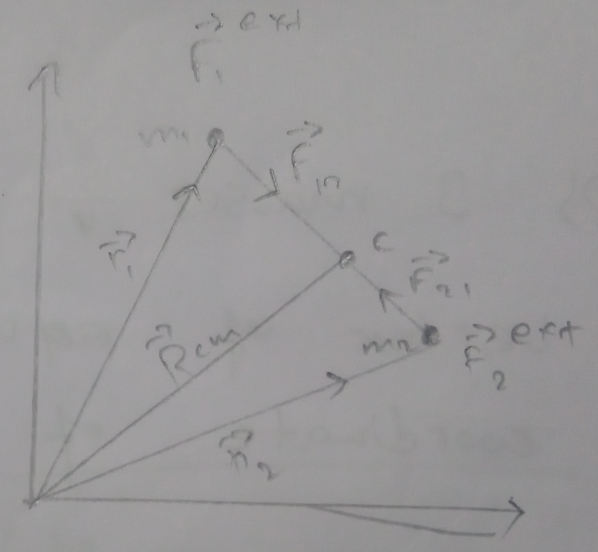 F₁ ext
m₁
F₁₂
r₁
C
F₂₁
R cm
m₂
F₂ ext
r₂